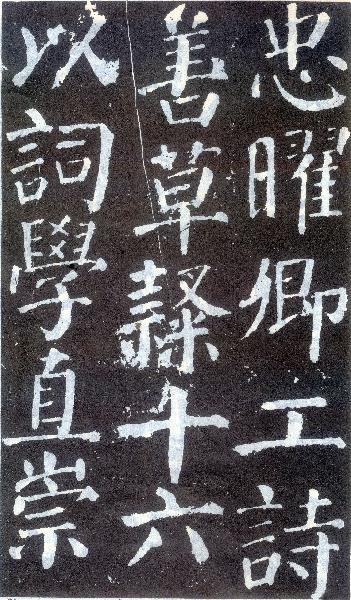 忠曜卿工詩
善草隸十六
以詞學直崇